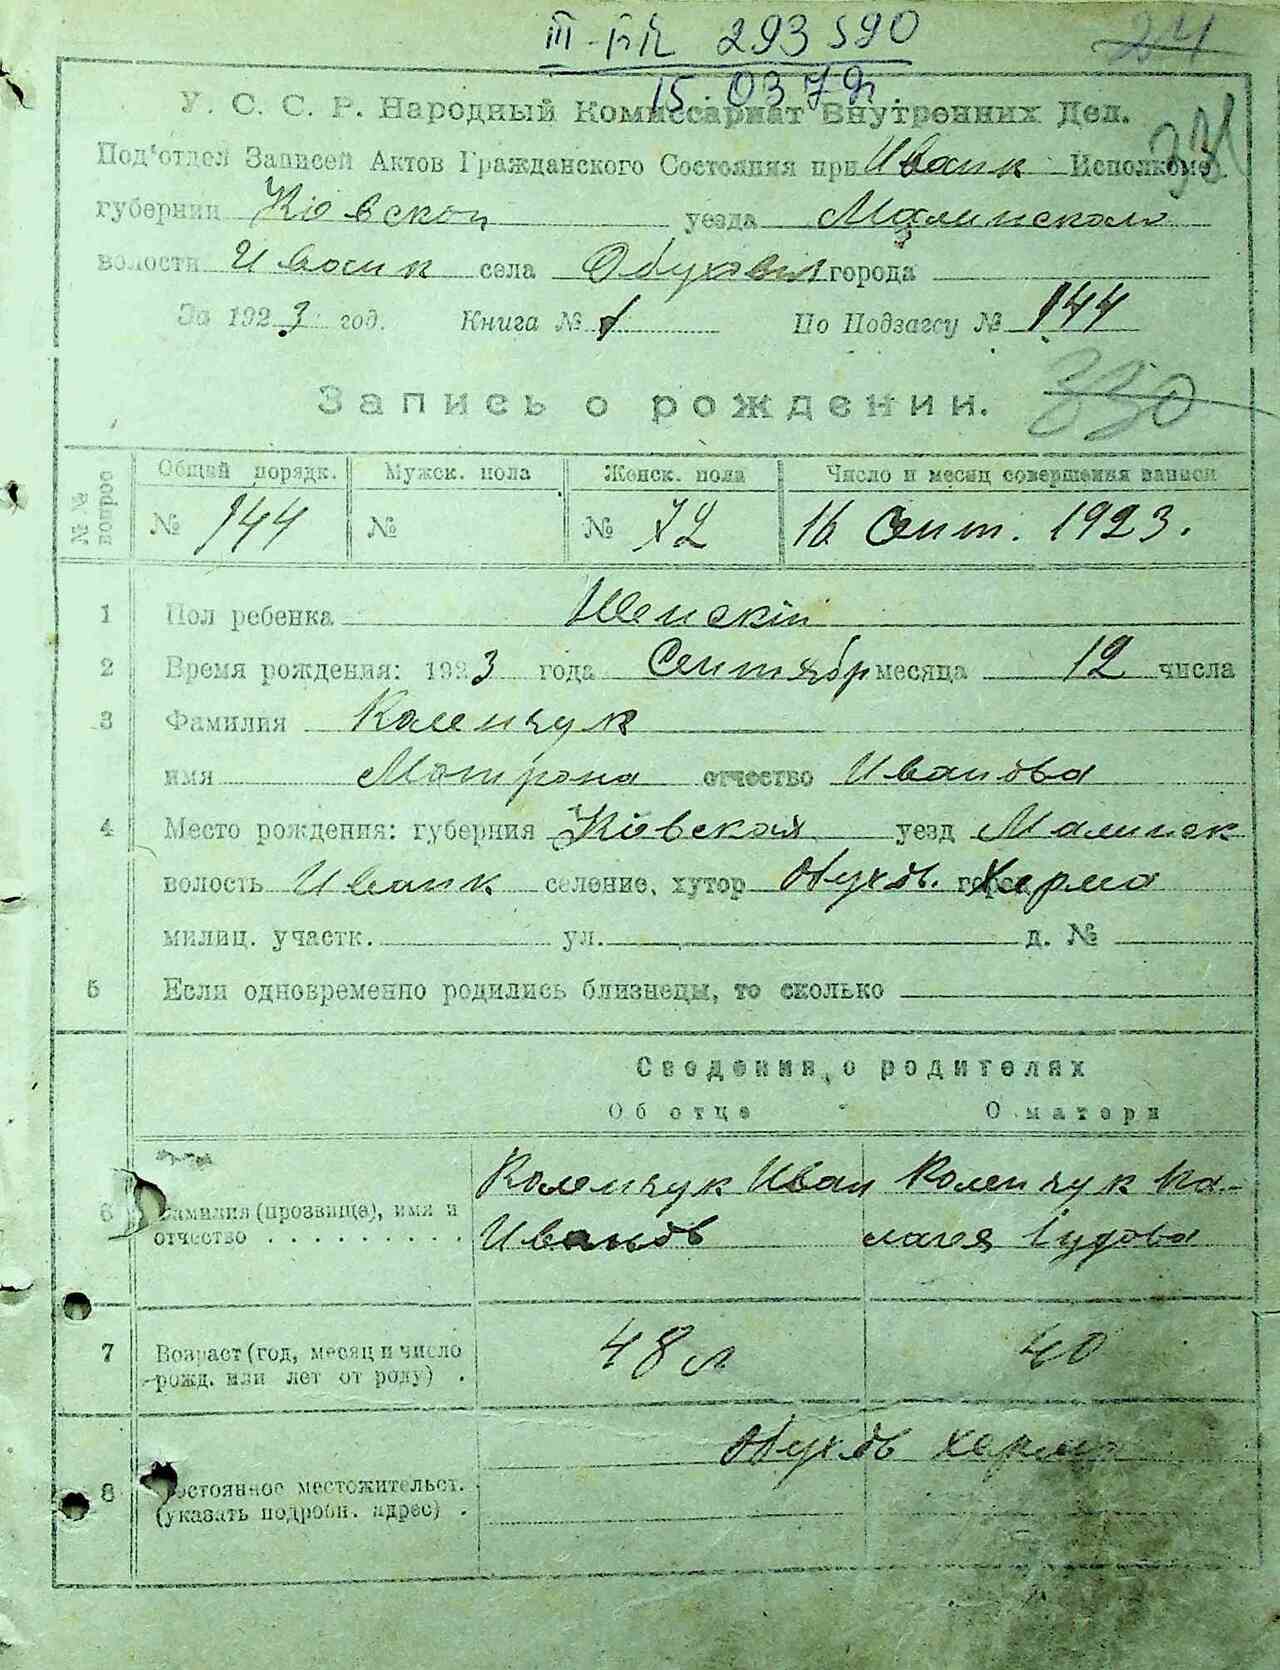 III-БК 293590
24
15.03.79г
У. С. С. Р. Народный Комиссариат Внутренних Дел.
Под'отдел Записей Актов Гражданского Состояния при Иванк Исполкоме
губернии Кіовской уезда Малинского
волости Иванк села Обуховил города
За 1923 год. Книга № 1 По Подзагсу № 144
330
Запись о рождении.
№№ вопрос
Общий порядк. Мужск. пола Женск. пола Число и месяц совершения записи
№ 144 № № 72 16 Сент. 1923.
1 Пол ребенка Женскій
2 Время рождения: 1923 года Сентябр месяца 12 числа
3 Фамилия Коленчук
имя Мотрона отчество Иванова
4 Место рождения: губерния Кіовская уезд Малинск
волость Иванк селение, хутор Обухов. город Херма
милиц. участк. ул. д. №
5 Если одновременно родились близнецы, то сколько
Сведения о родителях
Об отце О матери
Коленчук Иван Коленчук Па-
6 Фамилия (прозвище), имя и
отчество . . . . . . . . . Иванов лагея Іудова
7 Возраст (год, месяц и число 48 л 40
рожд. или лет от роду) .
Обухов Херма
8 Постоянное местожительст.
(указать подробн. адрес) .